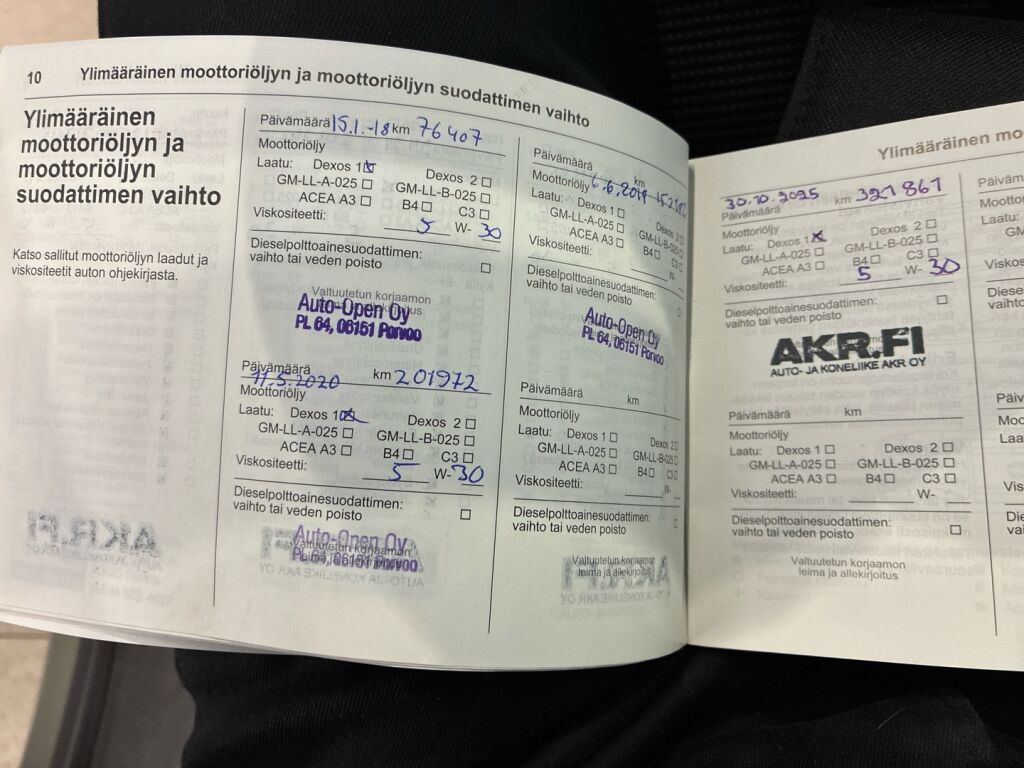 10 Ylimääräinen moottoriöljyn ja moottoriöljyn suodattimen vaihto
Ylimääräinen
moottoriöljyn ja
moottoriöljyn
suodattimen vaihto
Katso sallitut moottoriöljyn laadut ja
viskositeetit auton ohjekirjasta.
Päivämäärä 15.1.-18 km 76407
Moottoriöljy
Laatu: Dexos 1 ☒ Dexos 2 ☐
GM-LL-A-025 ☐ GM-LL-B-025 ☐
ACEA A3 ☐ B4 ☐ C3 ☐
Viskositeetti: 5 W- 30
Dieselpolttoainesuodattimen:
vaihto tai veden poisto ☐
Valtuutetun korjaamon
Auto-Open Oy
PL 64, 06151 Porvoo
Päivämäärä km 201972
.5.2020
Moottoriöljy
Laatu: Dexos 1 ☒ Dexos 2 ☐
GM-LL-A-025 ☐ GM-LL-B-025 ☐
ACEA A3 ☐ B4 ☐ C3 ☐
Viskositeetti: 5 W- 30
Dieselpolttoainesuodattimen:
vaihto tai veden poisto ☐
Auto-Open Oy
Valtuutetun korjaamon
PL 64, 06151 Porvoo
Päivämäärä km
Moottoriöljy 6.6.2019
Laatu: Dexos 1 ☐ Dexos 2 ☐
GM-LL-A-025 ☐ GM-LL-B-025 ☐
ACEA A3 ☐ B4 ☐ C3 ☐
Viskositeetti: W-
Dieselpolttoainesuodattimen:
vaihto tai veden poisto ☐
Auto-Open Oy
PL 64, 06151 Porvoo
Päivämäärä km
Moottoriöljy
Laatu: Dexos 1 ☐ Dexos 2 ☐
GM-LL-A-025 ☐ GM-LL-B-025 ☐
ACEA A3 ☐ B4 ☐ C3 ☐
Viskositeetti: W-
Dieselpolttoainesuodattimen:
vaihto tai veden poisto ☐
Valtuutetun korjaamon
leima ja allekirjoitus
Ylimääräinen mo
30.10.2025 km 321861
Päivämäärä
Moottoriöljy
Laatu: Dexos 1 ☒ Dexos 2 ☐
GM-LL-A-025 ☐ GM-LL-B-025 ☐
ACEA A3 ☐ B4 ☐ C3 ☐
Viskositeetti: 5 W- 30
Dieselpolttoainesuodattimen:
vaihto tai veden poisto ☐
AKR.FI
AUTO- JA KONELIIKE AKR OY
Päivämäärä km
Moottoriöljy
Laatu: Dexos 1 ☐ Dexos 2 ☐
GM-LL-A-025 ☐ GM-LL-B-025 ☐
ACEA A3 ☐ B4 ☐ C3 ☐
Viskositeetti: W-
Dieselpolttoainesuodattimen:
vaihto tai veden poisto ☐
Valtuutetun korjaamon
leima ja allekirjoitus
Päiväm
Moottor
Laatu:
GM
Viskos
Diese
vaiht
Päiv
Moo
Laa
Vis
Die
va